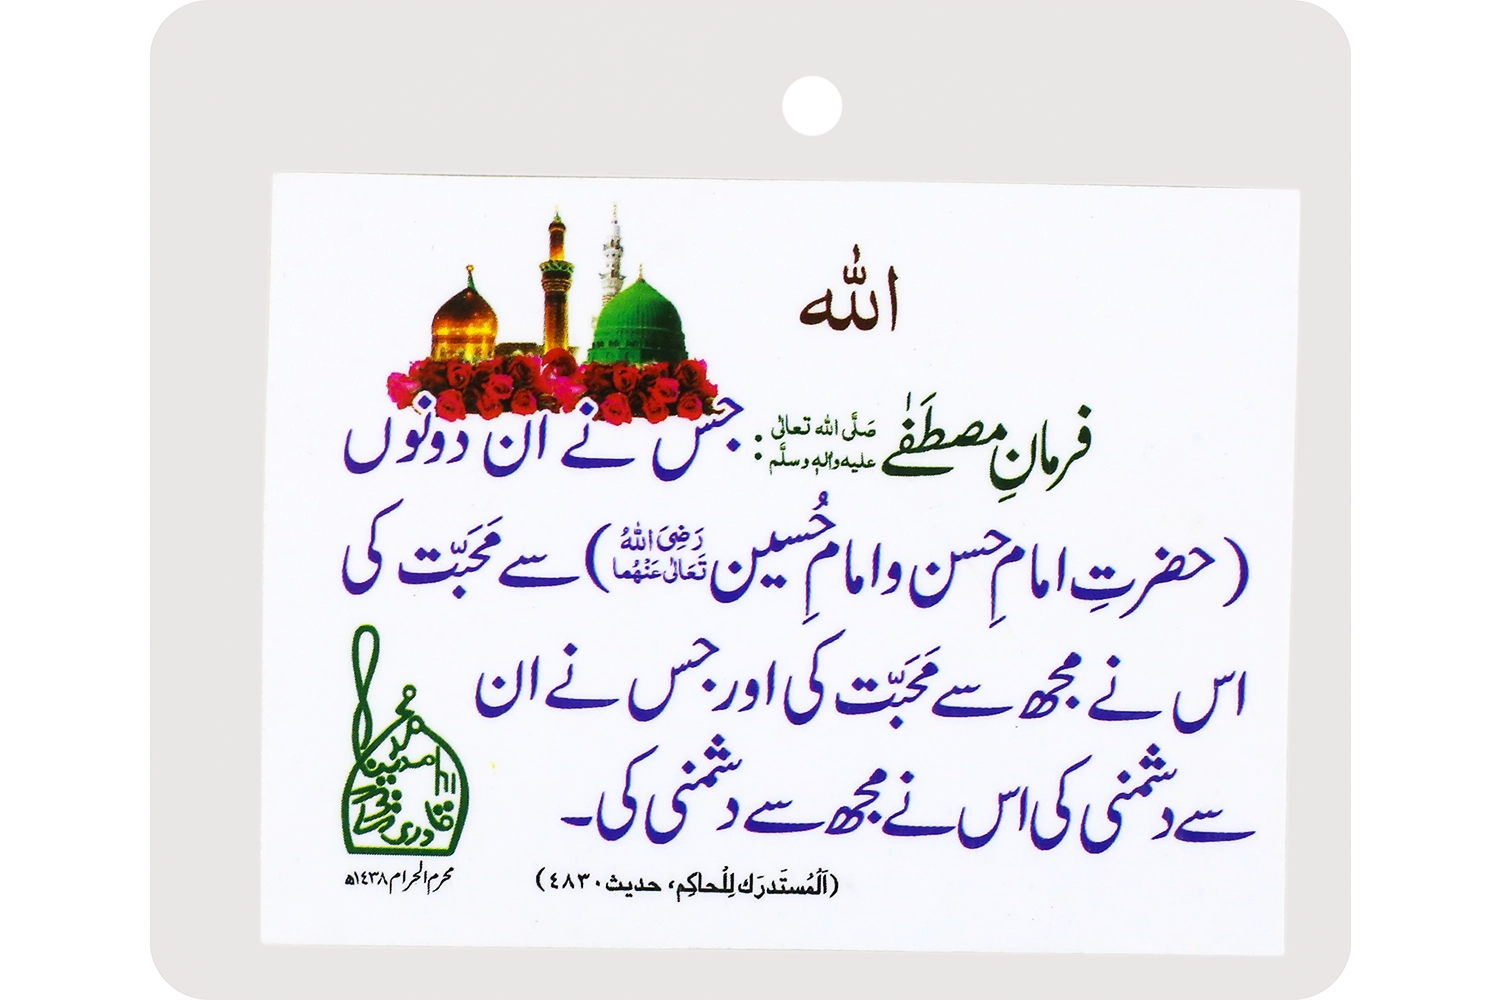 الله
فرمانِ مصطَفٰے صَلَّی اللہ تعالٰی علیہ واٰلہٖ وسلَّم : جس نے ان دونوں
(حضرتِ امامِ حسن و امامِ حُسین رَضِیَ اللہُ تَعَالٰی عَنْہُما) سے مَحَبَّت کی
اس نے مجھ سے مَحَبَّت کی اور جس نے ان
سے دشمنی کی اس نے مجھ سے دشمنی کی۔
(اَلْمُستَدرَك لِلْحاكِم، حدیث ٤٨٣٠)
محمد الیاس قادری
محرم الحرام ١٤٣٨ھ